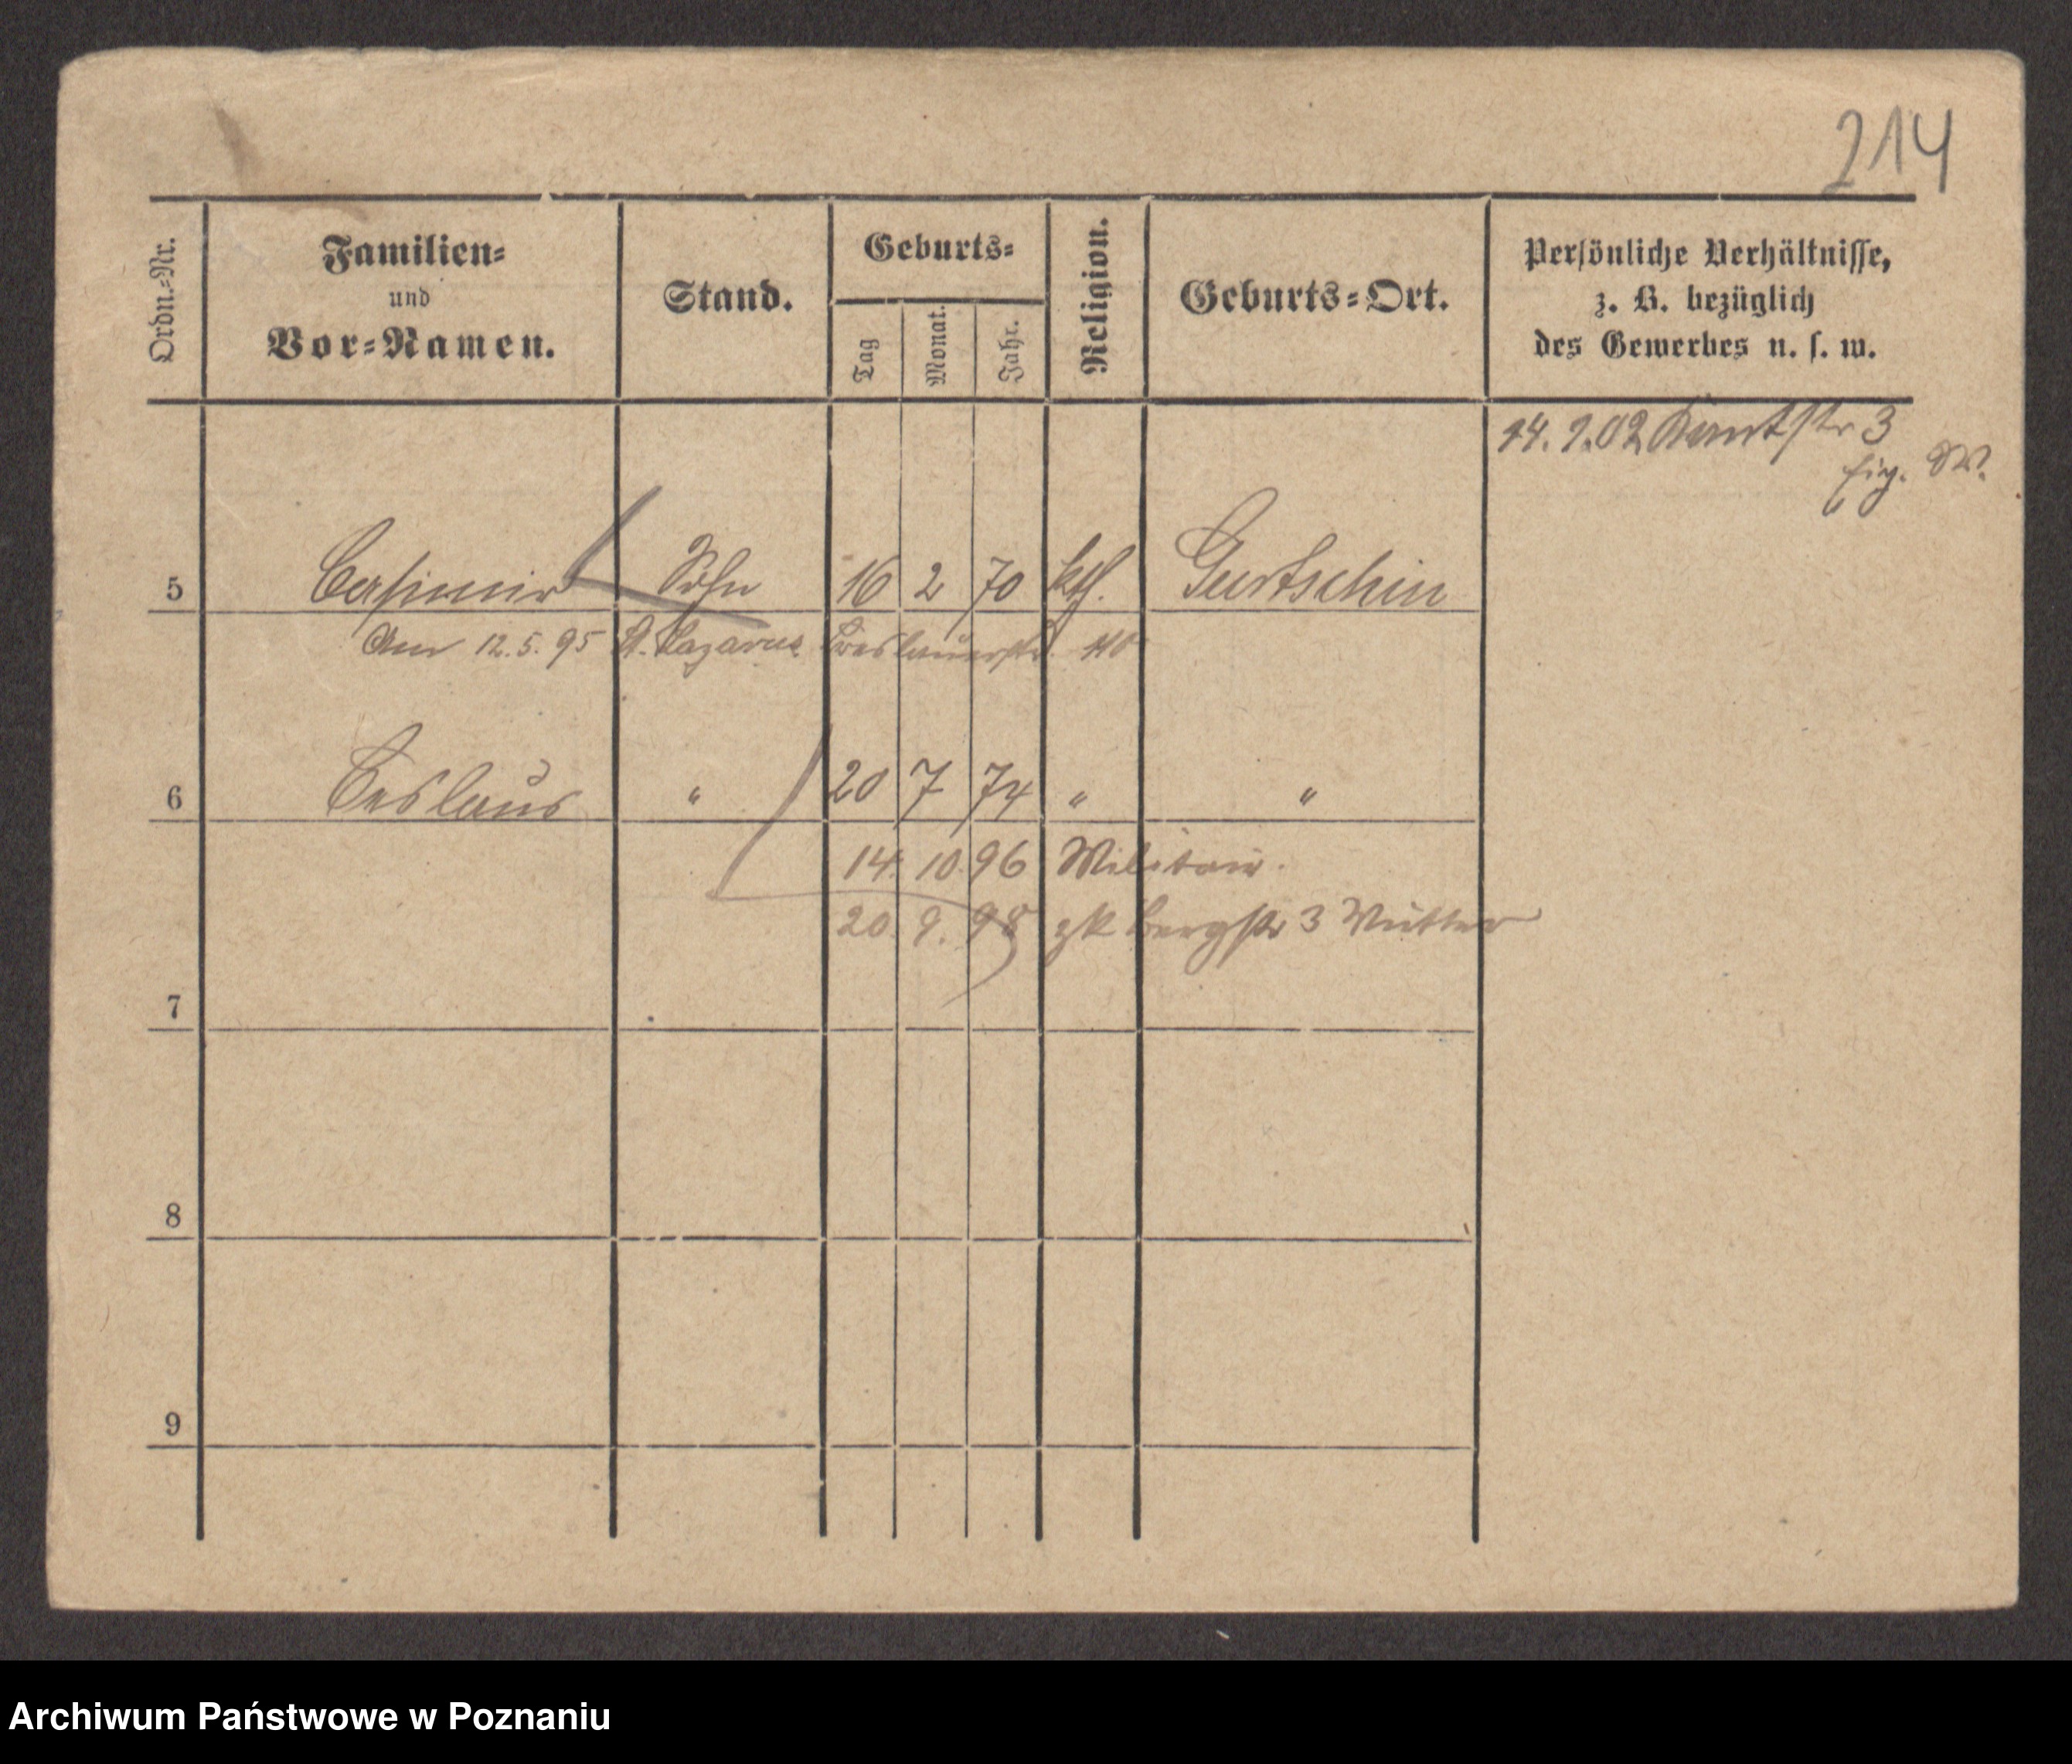 214
Ordn.-Nr.
Familien-
und
Vor-Namen.
Stand.
Geburts-
Tag
Monat.
Jahr.
Religion.
Geburts-Ort.
Persönliche Verhältnisse,
z. B. bezüglich
des Gewerbes u. s. w.
14. 9. 02 Kantstr 3
5 Casimir Sohn 16 2 70 kth. Gurtschin
Am 12. 5. 95 St. Lazarus Breslauerstr.
6 Ceslaus " 20 7 74 " "
14. 10. 96 Militair.
20. 9. 98 zk Bergstr 3 Mutter
7
8
9
Archiwum Państwowe w Poznaniu